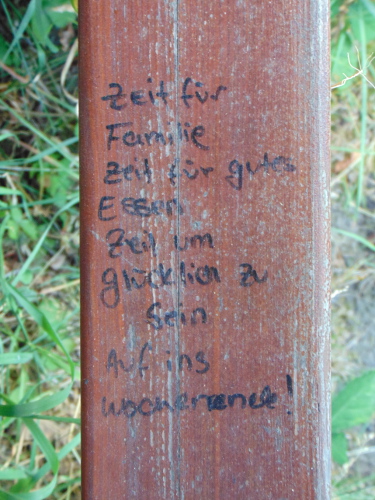 Zeit für
Familie
Zeit für gutes
Essen
Zeit um
glücklich zu
Sein
Auf ins
Wochenende!